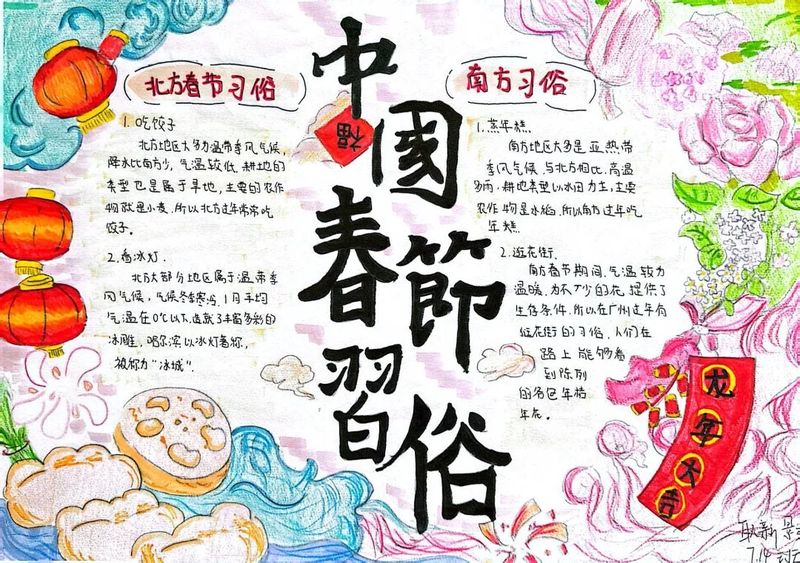 中國春節習俗
福
北方春节习俗
1. 吃饺子
北方地区大多为温带季风气候，
降水比南方少，气温较低，耕地的
类型也是属于旱地，主要的农作
物就是小麦，所以北方过年常常吃
饺子。
2. 看冰灯.
北方大部分地区属于温带季
风气候，气候冬季寒冷，1月平均
气温在0℃以下，造就了丰富多彩的
冰雕，哈尔滨以冰灯著称，
被称为“冰城”.
南方习俗
1. 蒸年糕.
南方地区大多是亚热带
季风气候，与北方相比，高温
多雨，耕地类型以水田为主，主要
农作物是水稻，所以南方过年吃
年糕
2. 逛花街.
南方春节期间，气温较为
温暖，为不少的花提供了
生长条件，所以在广州过年有
逛花街的习俗，人们在
路上能够看
到陈列
的各色年桔
年花。
龙年大吉
7.14